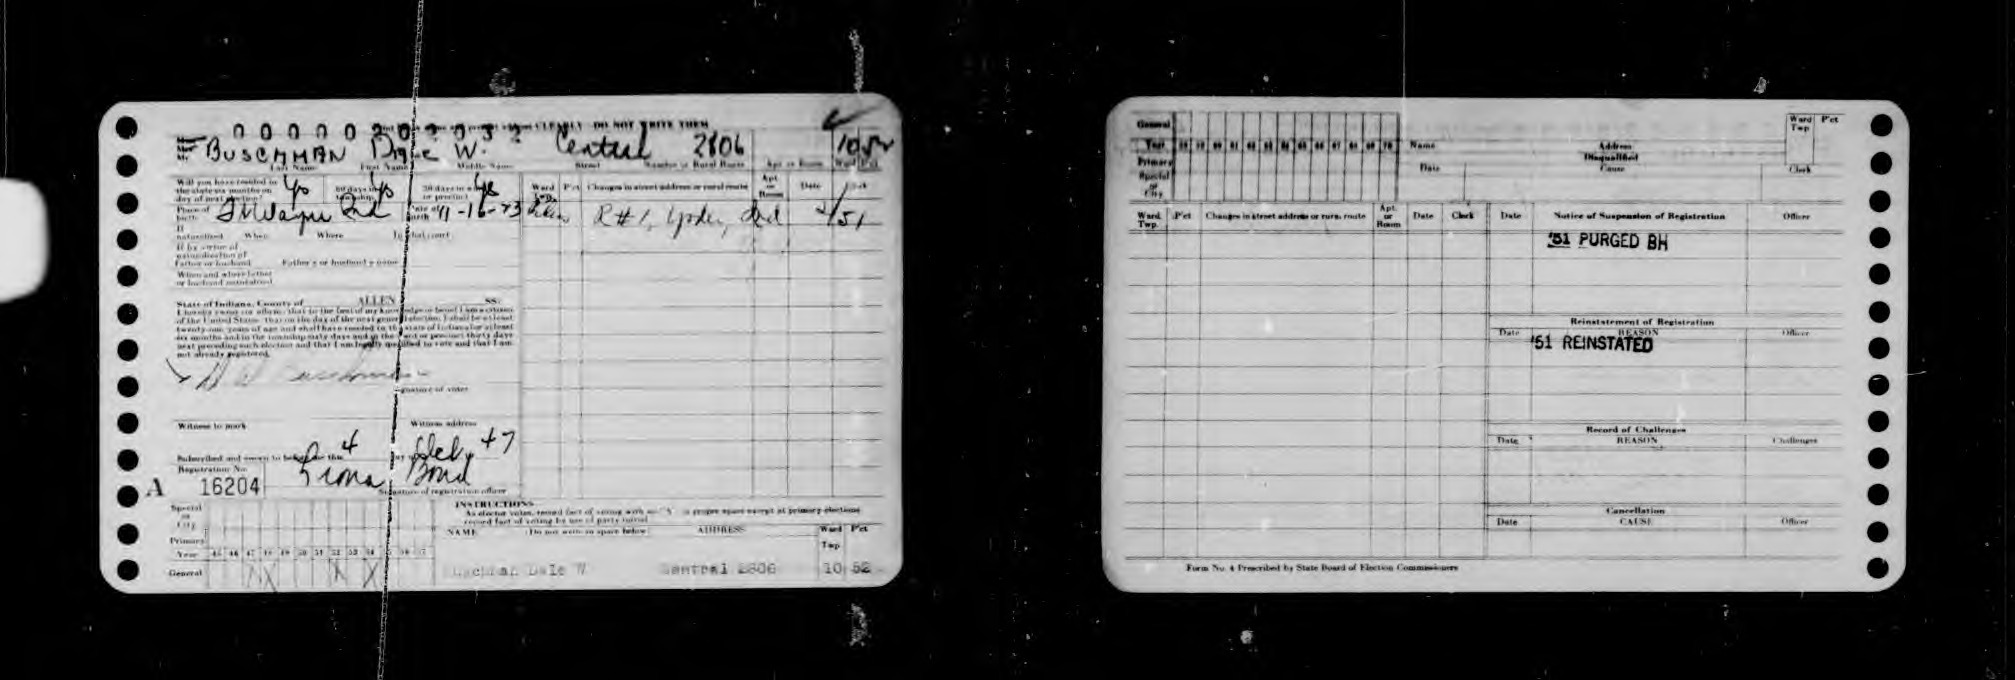 CLEARLY DO NOT WRITE THEM
BUSCHMAN Dale W. Central 2806 10 52
Last Name First Name Middle Name Street Number or Rural Route Apt. or Room Ward Pct.
Will you have resided in
the state six months on
day of next election? yes 60 days in township yes 30 days in or precinct yes
Ward Twp. P'ct Changes in street address or rural route Apt. or Room Date
Place of birth Ft Wayne Ind Date of birth 11-16-23 R#1, Yoder, Ind /51
If naturalized When Where In what court
If by virtue of
naturalization of
Father or husband Father's or husband's name
When and where father
or husband naturalized
State of Indiana, County of ALLEN SS:
I hereby swear (or affirm) that to the best of my knowledge or belief I am a citizen
of the United States; that on the day of the next general election, I shall be at least
twenty-one years of age and shall have resided in the state of Indiana for at least
six months and in the township sixty days and in the ward or precinct thirty days
next preceding such election and that I am legally qualified to vote and that I am
not already registered.
Signature of voter
Witness to mark Witness address
Subscribed and sworn to before me this 4 day of 47
Registration No.
A 16204 Bond
Signature of registration officer
INSTRUCTIONS
As elector votes, record fact of voting with an "X" in proper space except at primary elections
record fact of voting by use of party initial
Special or City
Primary
Year 45 46 47 48 49 50 51 52 53 54 5 56 7
General X X X
NAME (Do not write in space below) ADDRESS Ward Twp. P'ct
Buschman Dale W Central 2806 10 52
General
Year 58 59 60 61 62 63 64 65 66 67 68 69 70
Primary
Special
or
City
Name Address Ward Twp P'ct
Disqualified
Date Cause Clerk
Ward Twp. P'ct Changes in street address or rural route Apt. or Room Date Clerk
Date Notice of Suspension of Registration Officer
'51 PURGED BH
Reinstatement of Registration
Date REASON Officer
'51 REINSTATED
Record of Challenges
Date REASON Challenges
Cancellation
Date CAUSE Officer
Form No. 4 Prescribed by State Board of Election Commissioners